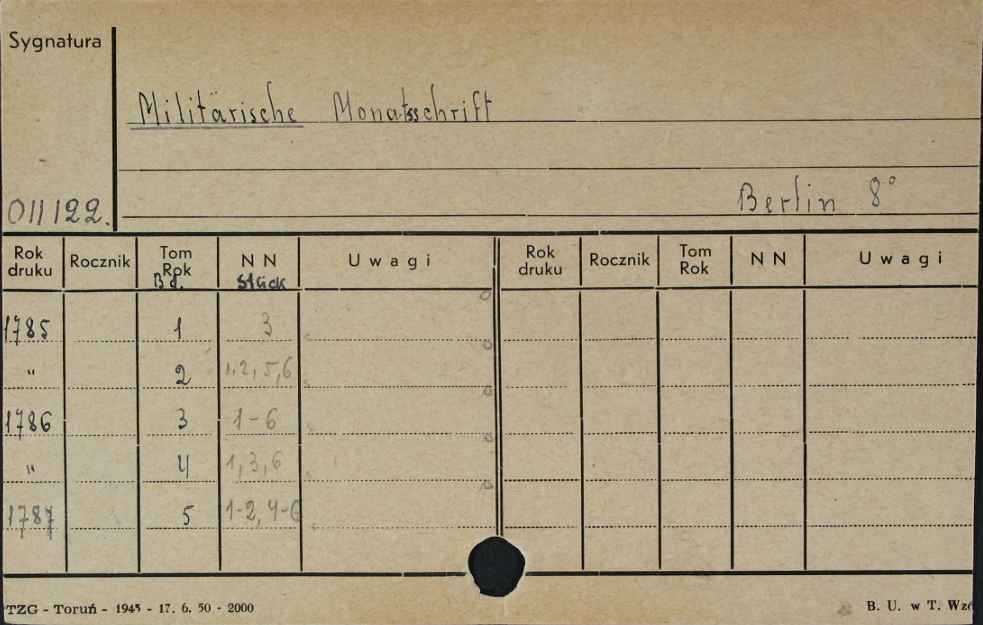 Sygnatura
Militärische Monatsschrift
Berlin 8°
011122.
Rok druku Rocznik Tom Rok Bd. N N Stück Uwagi Rok druku Rocznik Tom Rok N N Uwagi
1785 1 3
" 2 1,2,5,6
1786 3 1-6
" 4 1,3,6
1787 5 1-2, 4-6
TZG - Toruń - 1945 - 17. 6. 50 - 2000
B. U. w T. Wzó